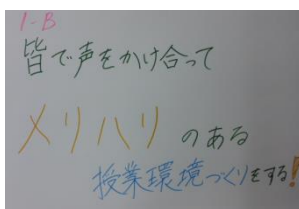 1-B
皆で声をかけ合って
メリハリのある
授業環境づくりをする!